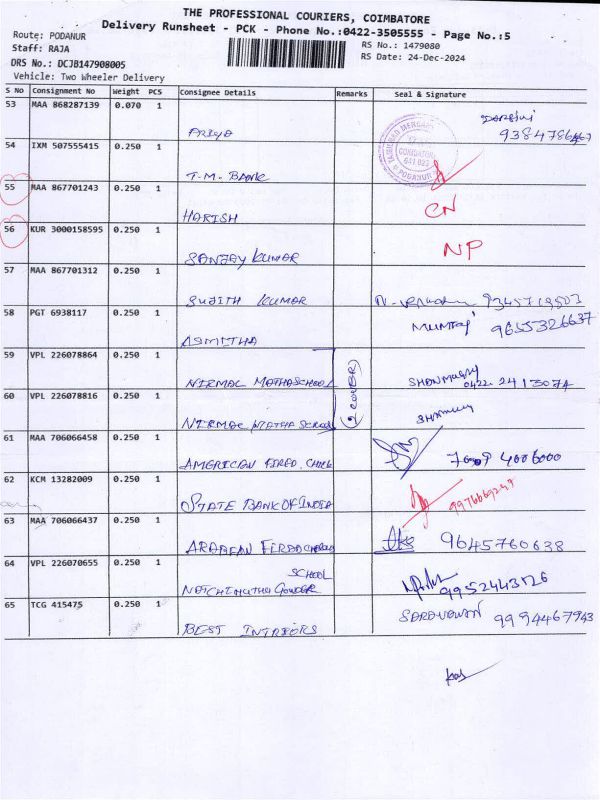 THE PROFESSIONAL COURIERS, COIMBATORE
Delivery Runsheet - PCK - Phone No.:0422-3505555 - Page No.:5
Route: PODANUR
Staff: RAJA
RS No.: 1479080
DRS No.: DCJB147908005
RS Date: 24-Dec-2024
Vehicle: Two Wheeler Delivery
S No Consignment No Weight PCS Consignee Details Remarks Seal & Signature
53 MAA 868287139 0.070 1
PRIYA
54 IXM 507555415 0.250 1
T.M. BANK
COIMBATORE
641 023
PODANUR
55 MAA 867701243 0.250 1
HARISH CN
56 KUR 3000158595 0.250 1
SANJAY KUMAR NP
57 MAA 867701312 0.250 1
SUJITH KUMAR
58 PGT 6938117 0.250 1
ASMITHA MUMTAJ 9655326637
59 VPL 226078864 0.250 1
NIRMAL MATHA SCHOOL 0422-2413074
(2 COVER)
60 VPL 226078816 0.250 1
NIRMAL MATHA SCHOOL
61 MAA 706066458 0.250 1
AMERICAN FIRED. CHICK
62 KCM 13282009 0.250 1
STATE BANK OF INDIA
63 MAA 706066437 0.250 1
9645760638
64 VPL 226070655 0.250 1
SCHOOL
9952443126
65 TCG 415475 0.250 1
BEST INTRIORS SARAVANAN 9994467943